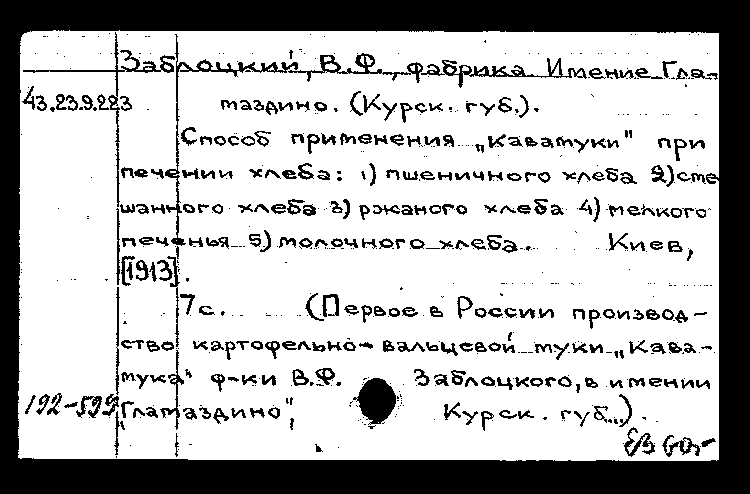 Заблоцкий, В.Ф., фабрика. Имение Гла-
43.23.9.223 маздино. (Курск. губ.).
Способ применения „Кавамуки" при
печении хлеба: 1) пшеничного хлеба 2) сме
шанного хлеба 3) ржаного хлеба 4) мелкого
печенья 5) молочного хлеба. Киев,
[1913].
7с. (Первое в России производ-
ство картофельно-вальцевой муки „Кава-
мука" ф-ки В.Ф. Заблоцкого, в имении
192-599 "Гламаздино", Курск. губ...).